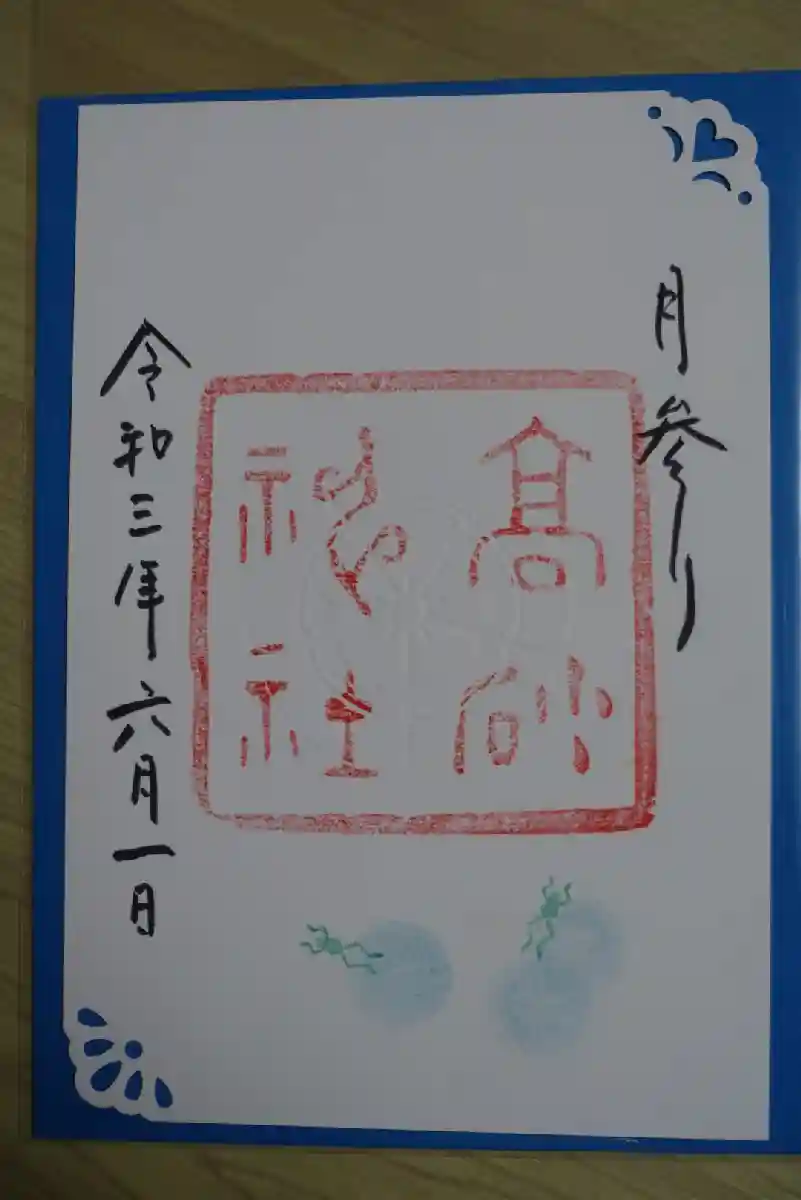 月参り
高砂
神社
令和三年六月一日